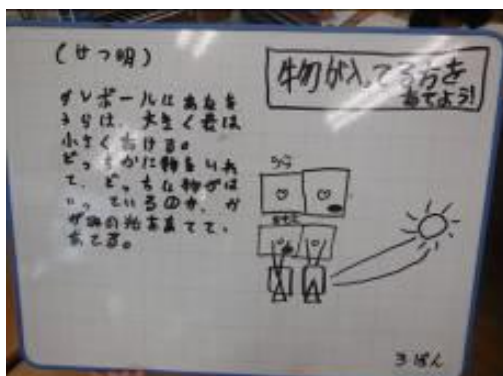 (せつ明)
ダンボールにあなを
うらは、大きく表は
小さく古ける。
どっちかに物をいれ
て、どっちに物がは
いっているのか、か
がみの光をあてて、
あてる。
物が入ってる方を
あてよう!
うら
3ぱん